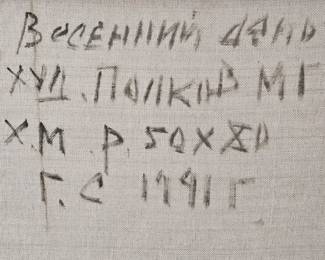 Восенний день
худ. Полков М Г
х.м р. 50х80
г. с 1991 г